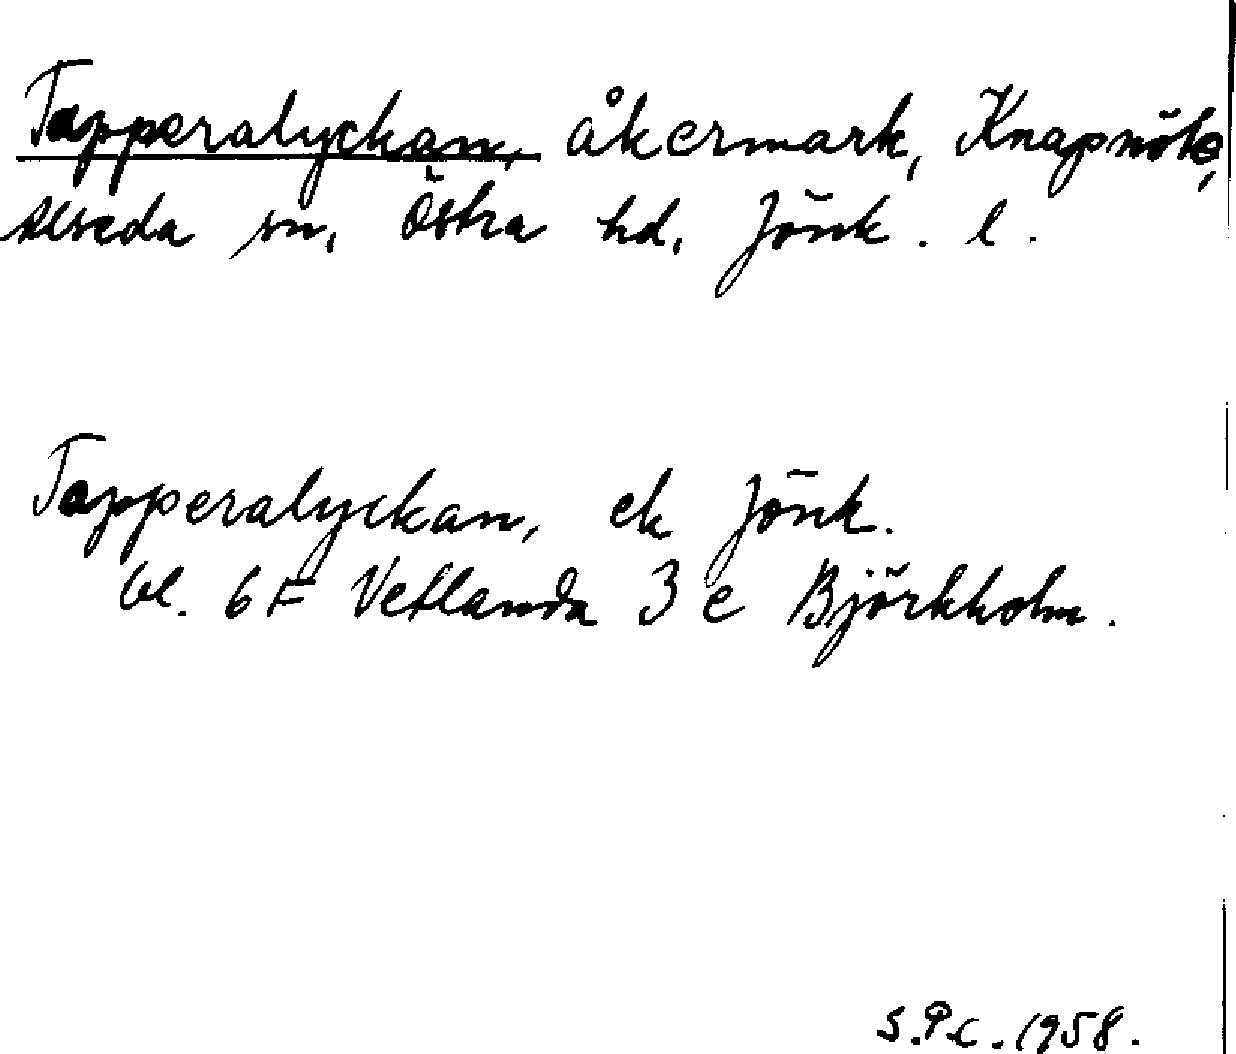 Tapperalyckan, åkermark, Knapnöte,
Alseda sn, Östra hd, Jönk. l.
Tapperalyckan, ek Jönk.
bl. 6 F Vetlanda 3 e Björkholm.
S.P.C. 1958.